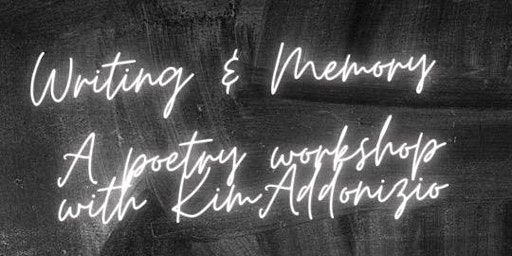 Writing & Memory
A poetry workshop
with Kim Addonizio